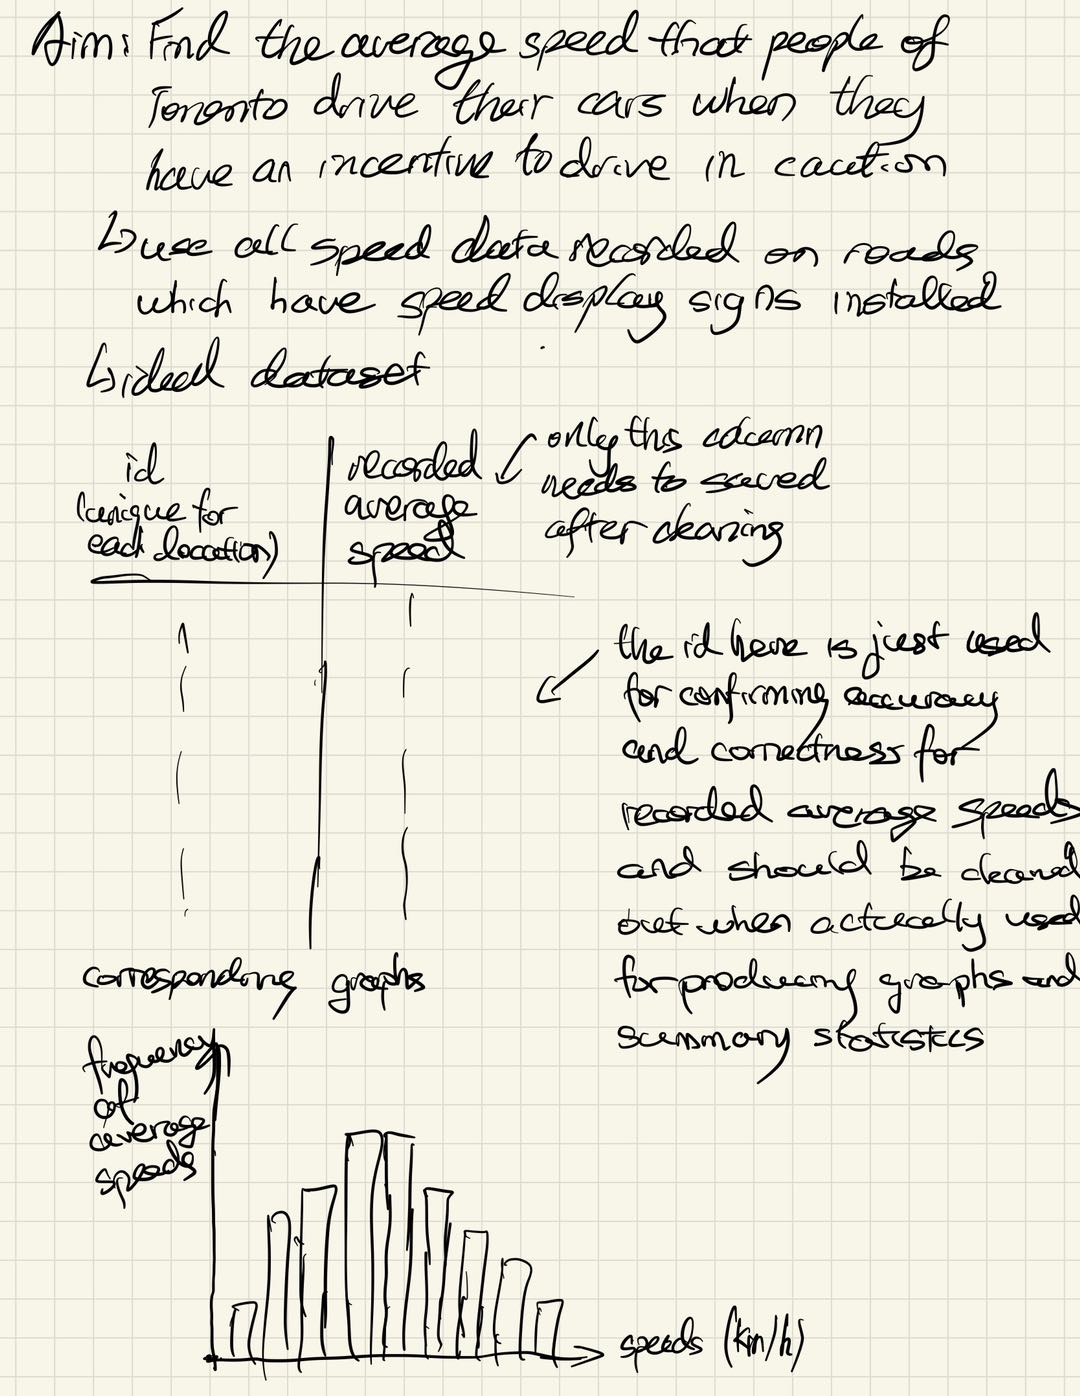 Aim: Find the average speed that people of
Toronto drive their cars when they
have an incentive to drive in caution
↳ use all speed data recorded on roads
which have speed display signs installed
↳ ideal dataset
id
(unique for
each location)
recorded
average
speed
only this column
needs to saved
after cleaning
the id here is just used
for confirming accuracy
and correctness for
recorded average speeds
and should be cleaned
out when actually used
for producing graphs and
summary statistics
corresponding graphs
frequency
of
average
speeds
speeds (km/h)